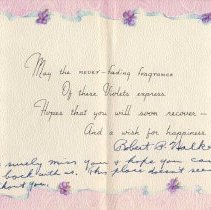 May the never-fading fragrance
Of these Violets express
Hopes that you will soon recover—
And a wish for happiness
Robert P. Walke
surely miss your & hope you can
back with us. This place doesn't see
hout you.